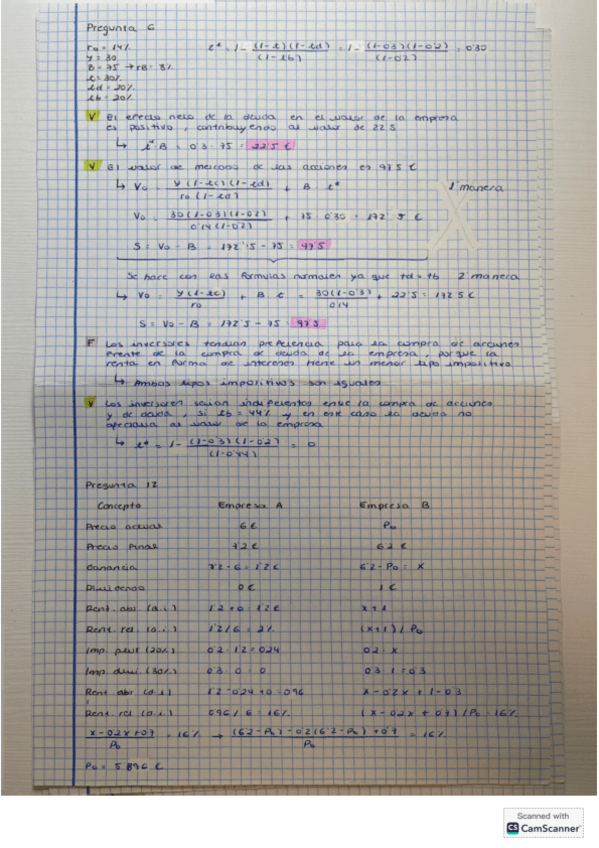 Pregunta 6
r₀ = 14% t* = 1 - (1-t)(1-td) / (1-tb) = 1 - (1-03)(1-02) / (1-02) = 0'30
y = 30
B = 75 → rB = 8%
t = 30%
td = 20%
tb = 20%
V El efecto neto de la deuda en el valor de la empresa
es positivo, contribuyendo al valor de 22'5
↳ t*·B = 0'3·75 = 22'5 €
V El valor de mercado de las acciones es 97'5 €
↳ V₀ = y(1-tc)(1-td) / r₀(1-td) + B·t* 1 manera
V₀ = 30(1-03)(1-02) / 0'14(1-02) + 75·0'30 = 172'5 €
S = V₀ - B = 172'5 - 75 = 97'5
Se hace con las formulas normales ya que td = tb 2 manera
↳ V₀ = y(1-tc) / r₀ + B t = 30(1-0'3) / 0'14 + 22'5 = 172'5 €
S = V₀ - B = 172'5 - 75 = 97'5
F Los inversores tendrian preferencia para la compra de acciones
frente de la compra de deuda de la empresa, porque la
renta en forma de intereses tiene un menor tipo impositivo
↳ Ambos tipos impositivos son iguales
V Los inversores serian indiferentes entre la compra de acciones
y de deuda, si tb = 44% y en este caso la deuda no
afectaria al valor de la empresa
↳ t* = 1 - (1-03)(1-02) / (1-0'44) = 0
Pregunta 12
Concepto Empresa A Empresa B
Precio actual 6 € P₀
Precio final 7'2 € 6'2 €
Ganancia 7'2 - 6 = 1'2 € 6'2 - P₀ = x
Dividendo 0 € 1 €
Rent. abs. (a.i.) 1'2 + 0 = 1'2 € x + 1
Rent. rel. (a.i.) 1'2/6 = 2% (x+1) / P₀
Imp. plusv (20%) 0'2·1'2 = 0'24 0'2·x
Imp. divi. (30%) 0'3·0 = 0 0'3·1 = 0'3
Rent abs (d.i) 1'2 - 0'24 + 0 = 0'96 x - 0'2x + 1 - 0'3
Rent. rel (d.i.) 0'96 / 6 = 16% (x - 0'2x + 0'7) / P₀ = 16%
x - 0'2x + 0'7 / P₀ = 16% → (6'2 - P₀) - 0'2(6'2 - P₀) + 0'7 / P₀ = 16%
P₀ = 5'896 €
Scanned with
CS CamScanner